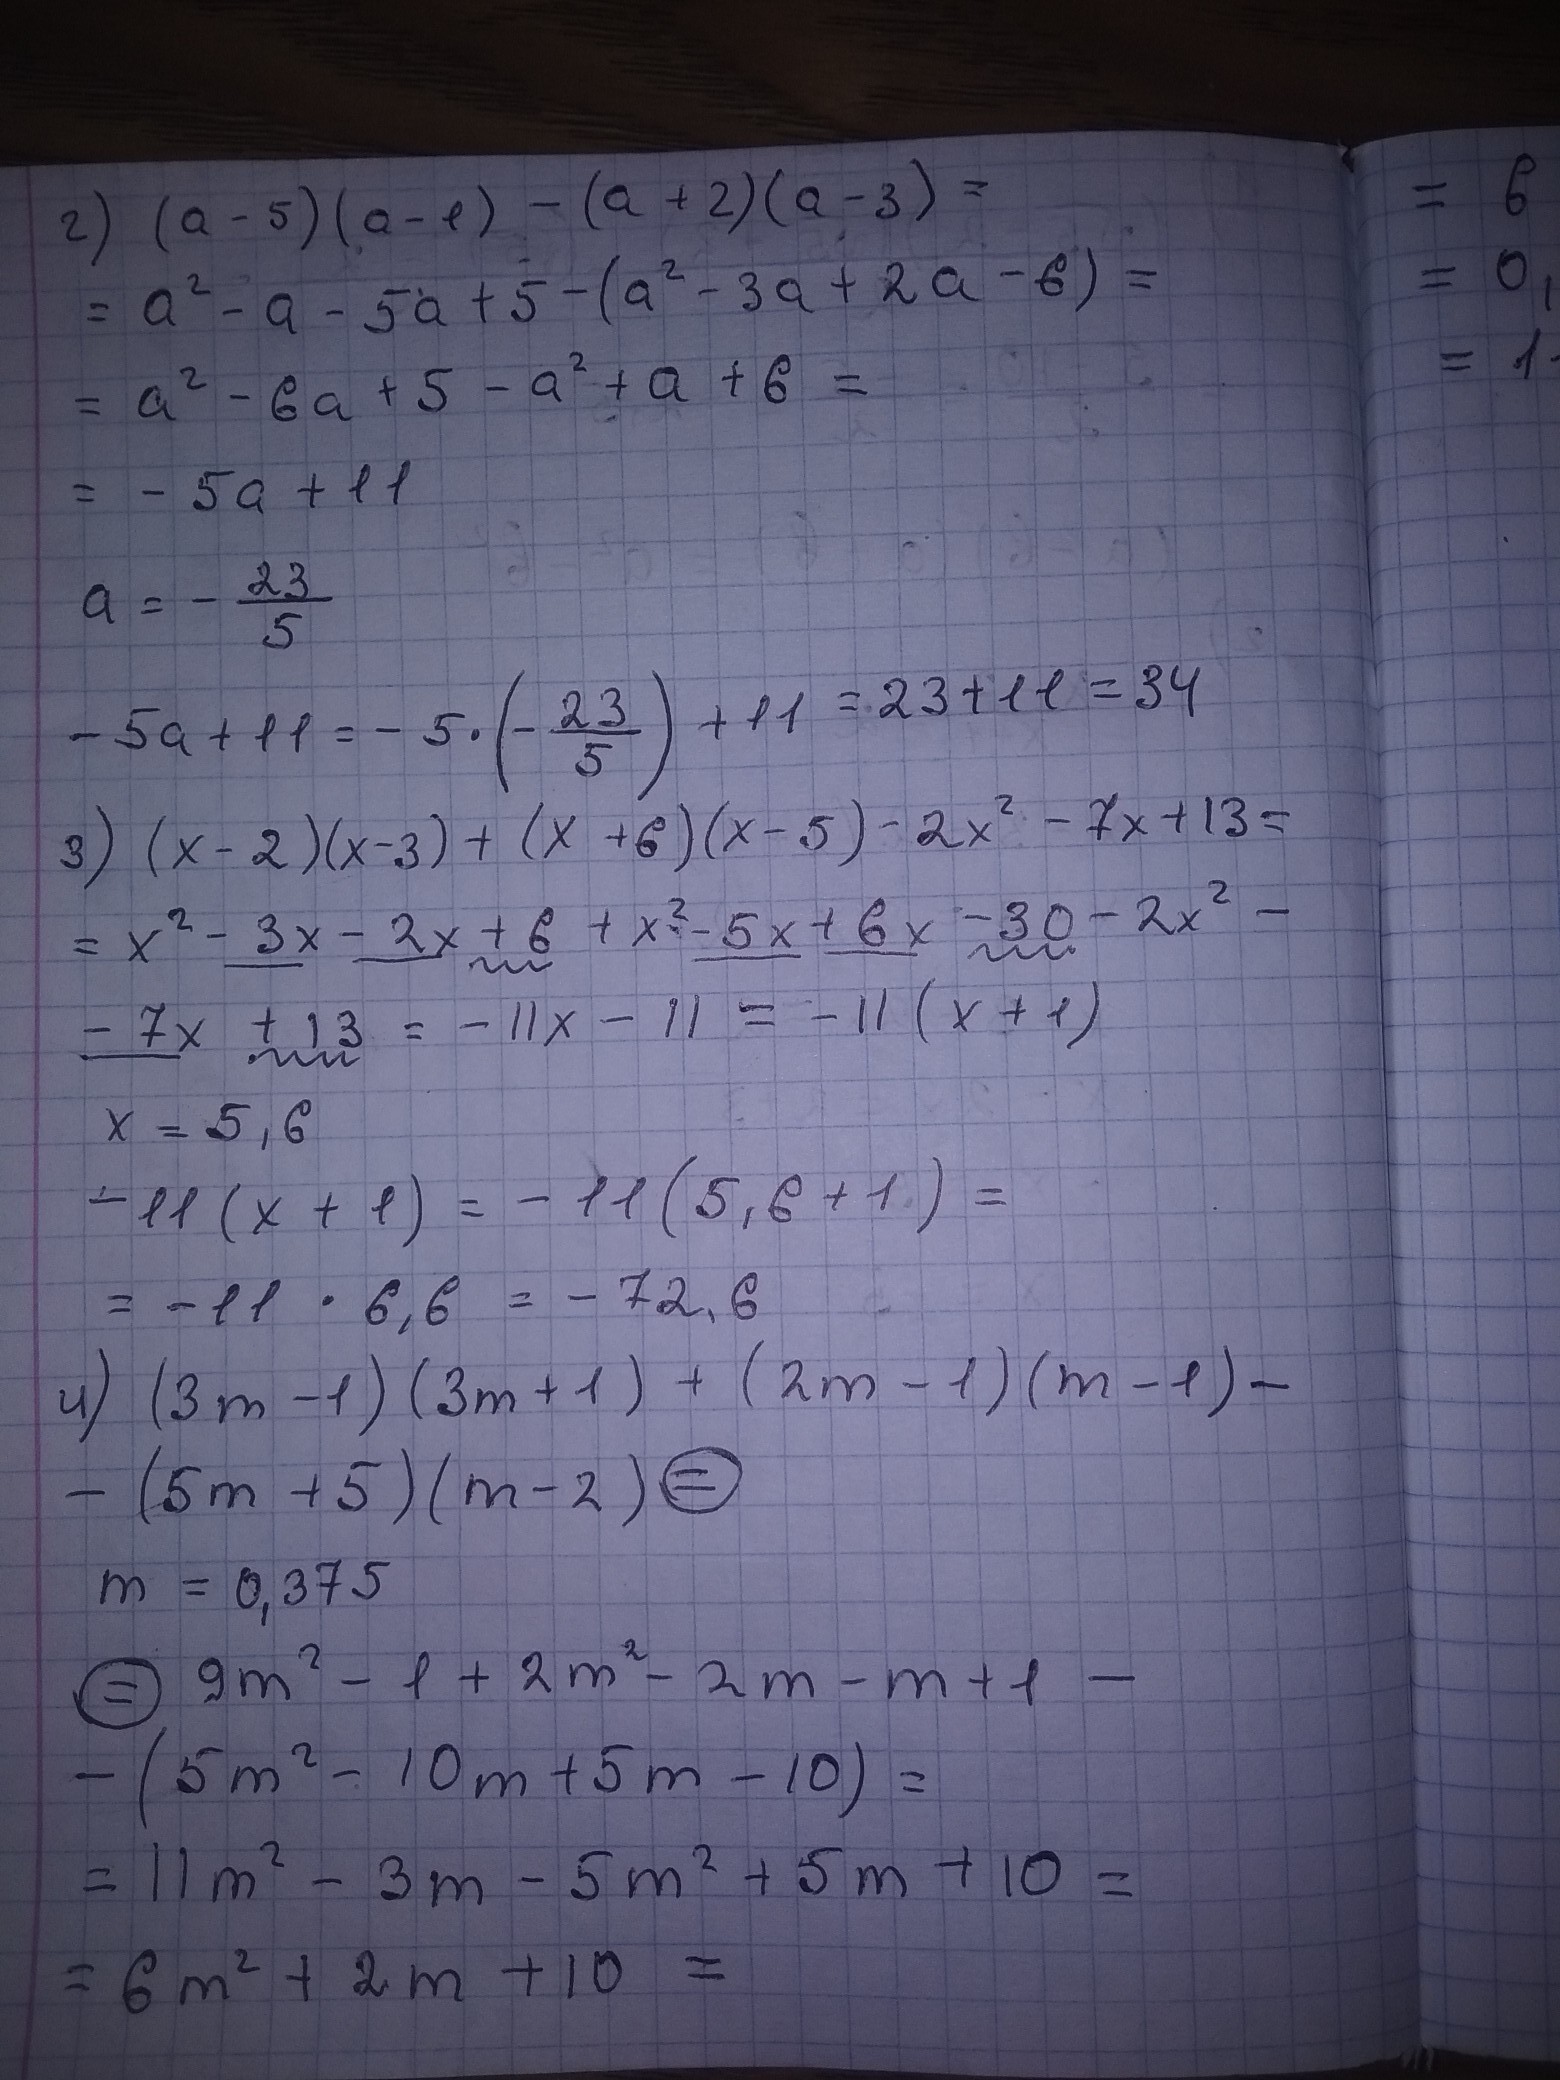 2) (a - 5)(a - 1) - (a + 2)(a - 3) =
= a² - a - 5a + 5 - (a² - 3a + 2a - 6) =
= a² - 6a + 5 - a² + a + 6 =
= - 5a + 11
a = - 23/5
- 5a + 11 = - 5 · (- 23/5) + 11 = 23 + 11 = 34
3) (x - 2)(x - 3) + (x + 6)(x - 5) - 2x² - 7x + 13 =
= x² - 3x - 2x + 6 + x² - 5x + 6x - 30 - 2x² -
- 7x + 13 = - 11x - 11 = - 11 (x + 1)
x = 5,6
- 11 (x + 1) = - 11 (5,6 + 1) =
= - 11 · 6,6 = - 72,6
4) (3m - 1)(3m + 1) + (2m - 1)(m - 1) -
- (5m + 5)(m - 2) =
m = 0,375
= 9m² - 1 + 2m² - 2m - m + 1 -
- (5m² - 10m + 5m - 10) =
= 11m² - 3m - 5m² + 5m + 10 =
= 6m² + 2m + 10 =
= 6
= 0,
= 1